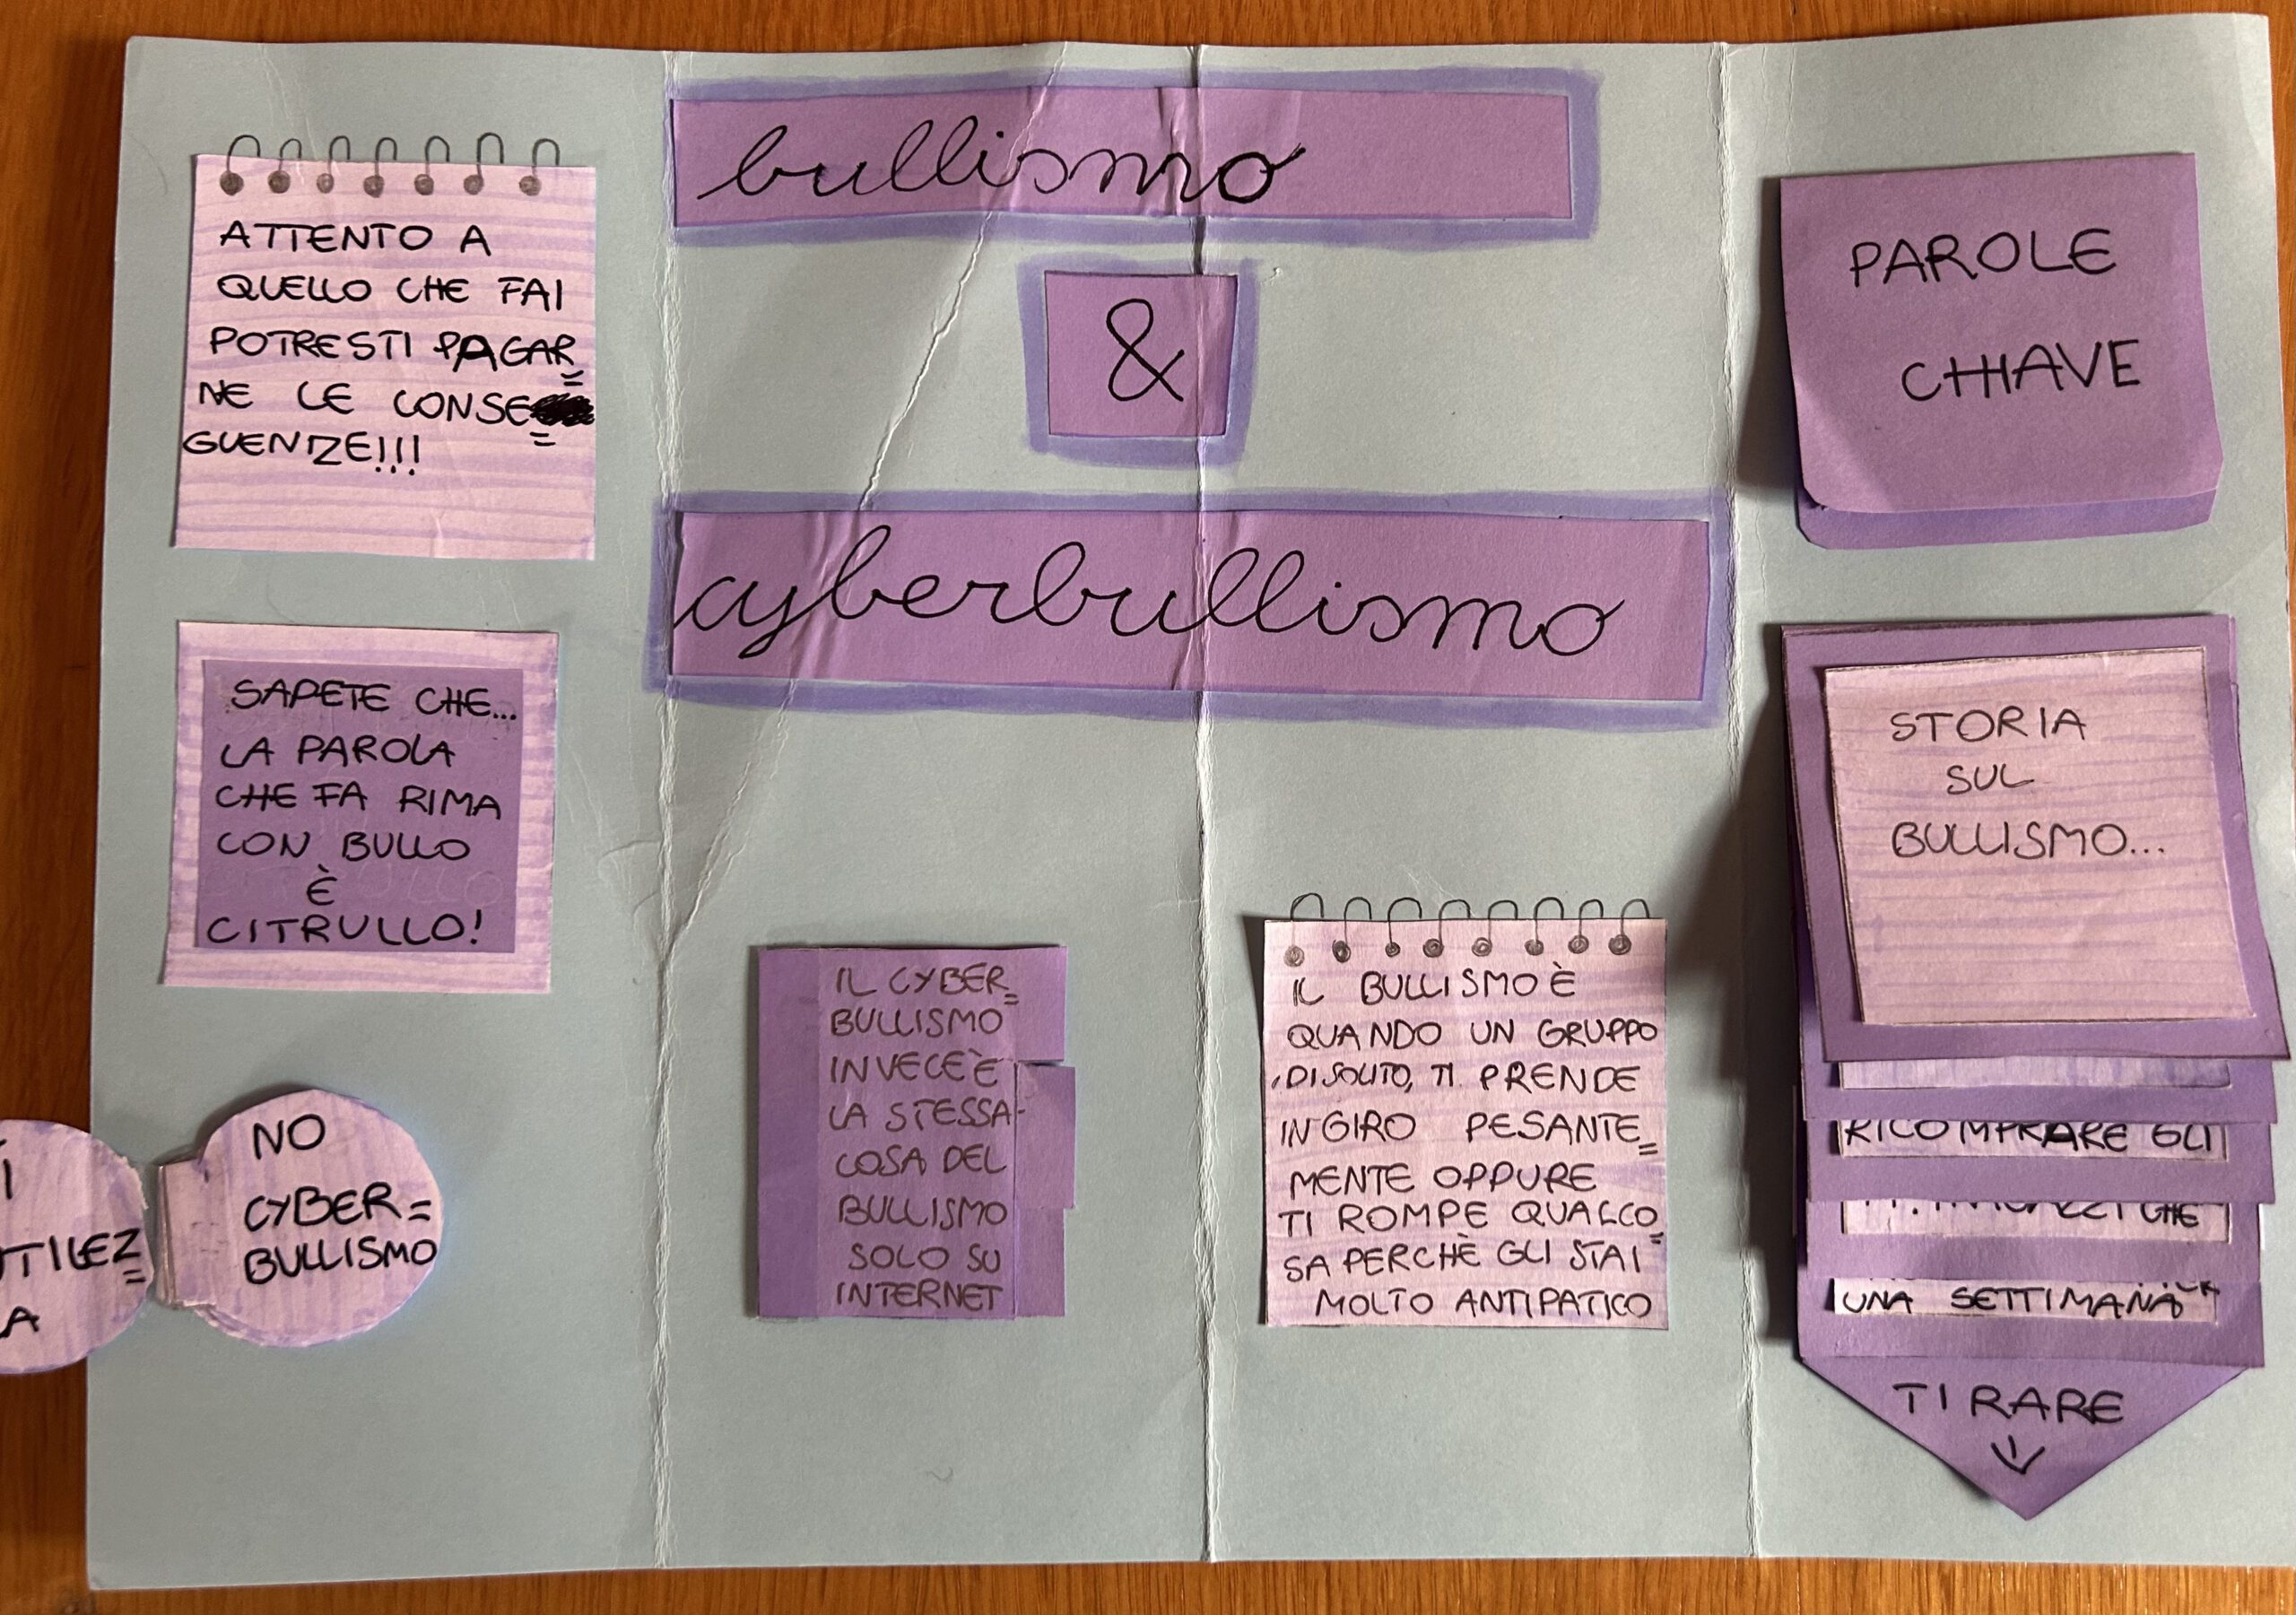 bullismo
&
cyberbullismo
ATTENTO A
QUELLO CHE FAI
POTRESTI PAGAR=
NE LE CONSE=
GUENZE!!!
SAPETE CHE...
LA PAROLA
CHE FA RIMA
CON BULLO
È
CITRULLO!
NO
CYBER=
BULLISMO
IL CYBER=
BULLISMO
INVECE È
LA STESSA
COSA DEL
BULLISMO
SOLO SU
INTERNET
IL BULLISMO È
QUANDO UN GRUPPO
DI SOLITO, TI PRENDE
IN GIRO PESANTE=
MENTE OPPURE
TI ROMPE QUALCO=
SA PERCHÈ GLI STAI
MOLTO ANTIPATICO
PAROLE
CHIAVE
STORIA
SUL
BULLISMO...
RICOMPRARE GLI
CHE
UNA SETTIMANA
TIRARE